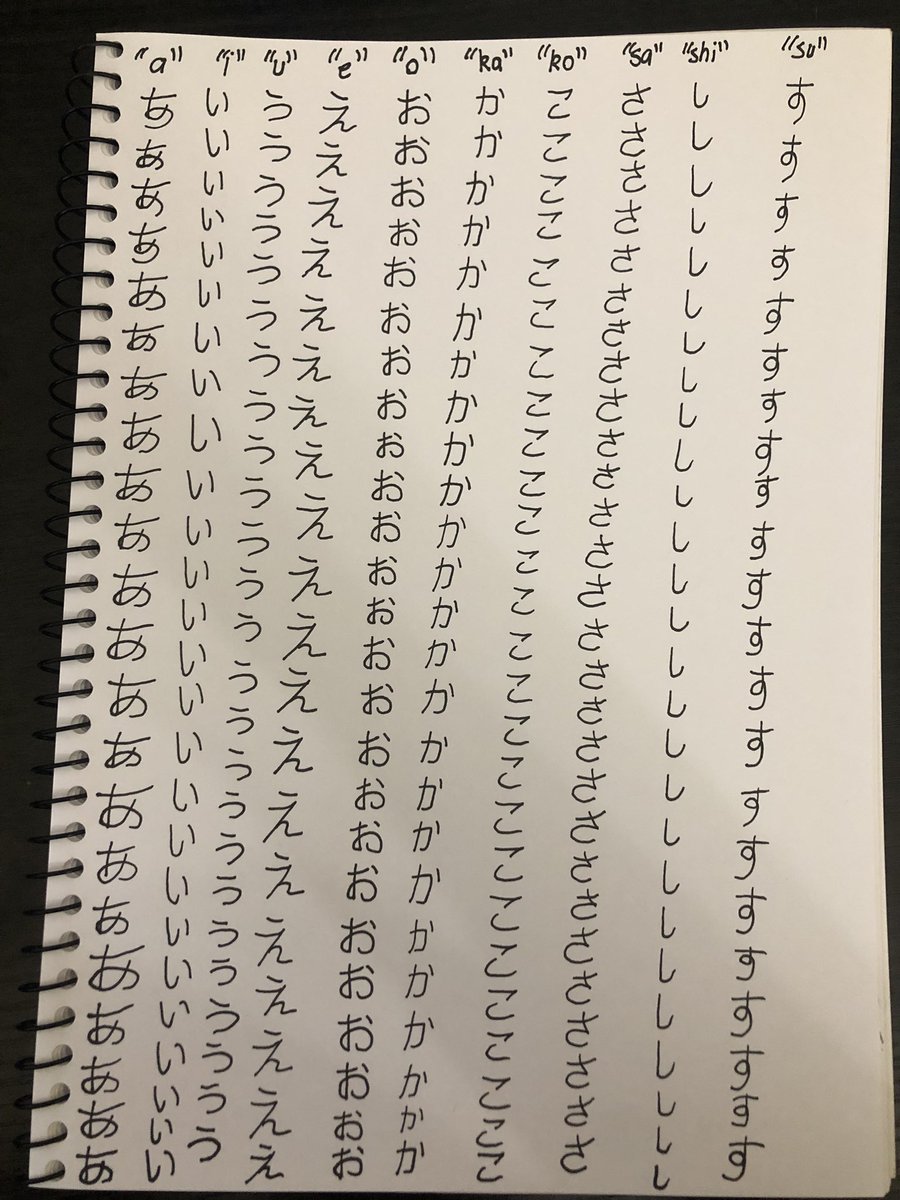 "a" "i" "u" "e" "o" "ka" "ko" "sa" "shi" "su"
ああああああああああああああああああああああ
いいいいいいいいいいいいいいいいいいいいいいいいいい
ううううううううううううううううううううううううう
ええええええええええええええええええええ
おおおおおおおおおおおおおおおおおおおおおおおおお
かかかかかかかかかかかかかかかかかかかかかかかかか
ここここここここここここここここここここここここここ
ささささささささささささささささささささささささささささ
ししししししししししししししししししししししししししし
すすすすすすすすすすすすすすすすすすすすすす